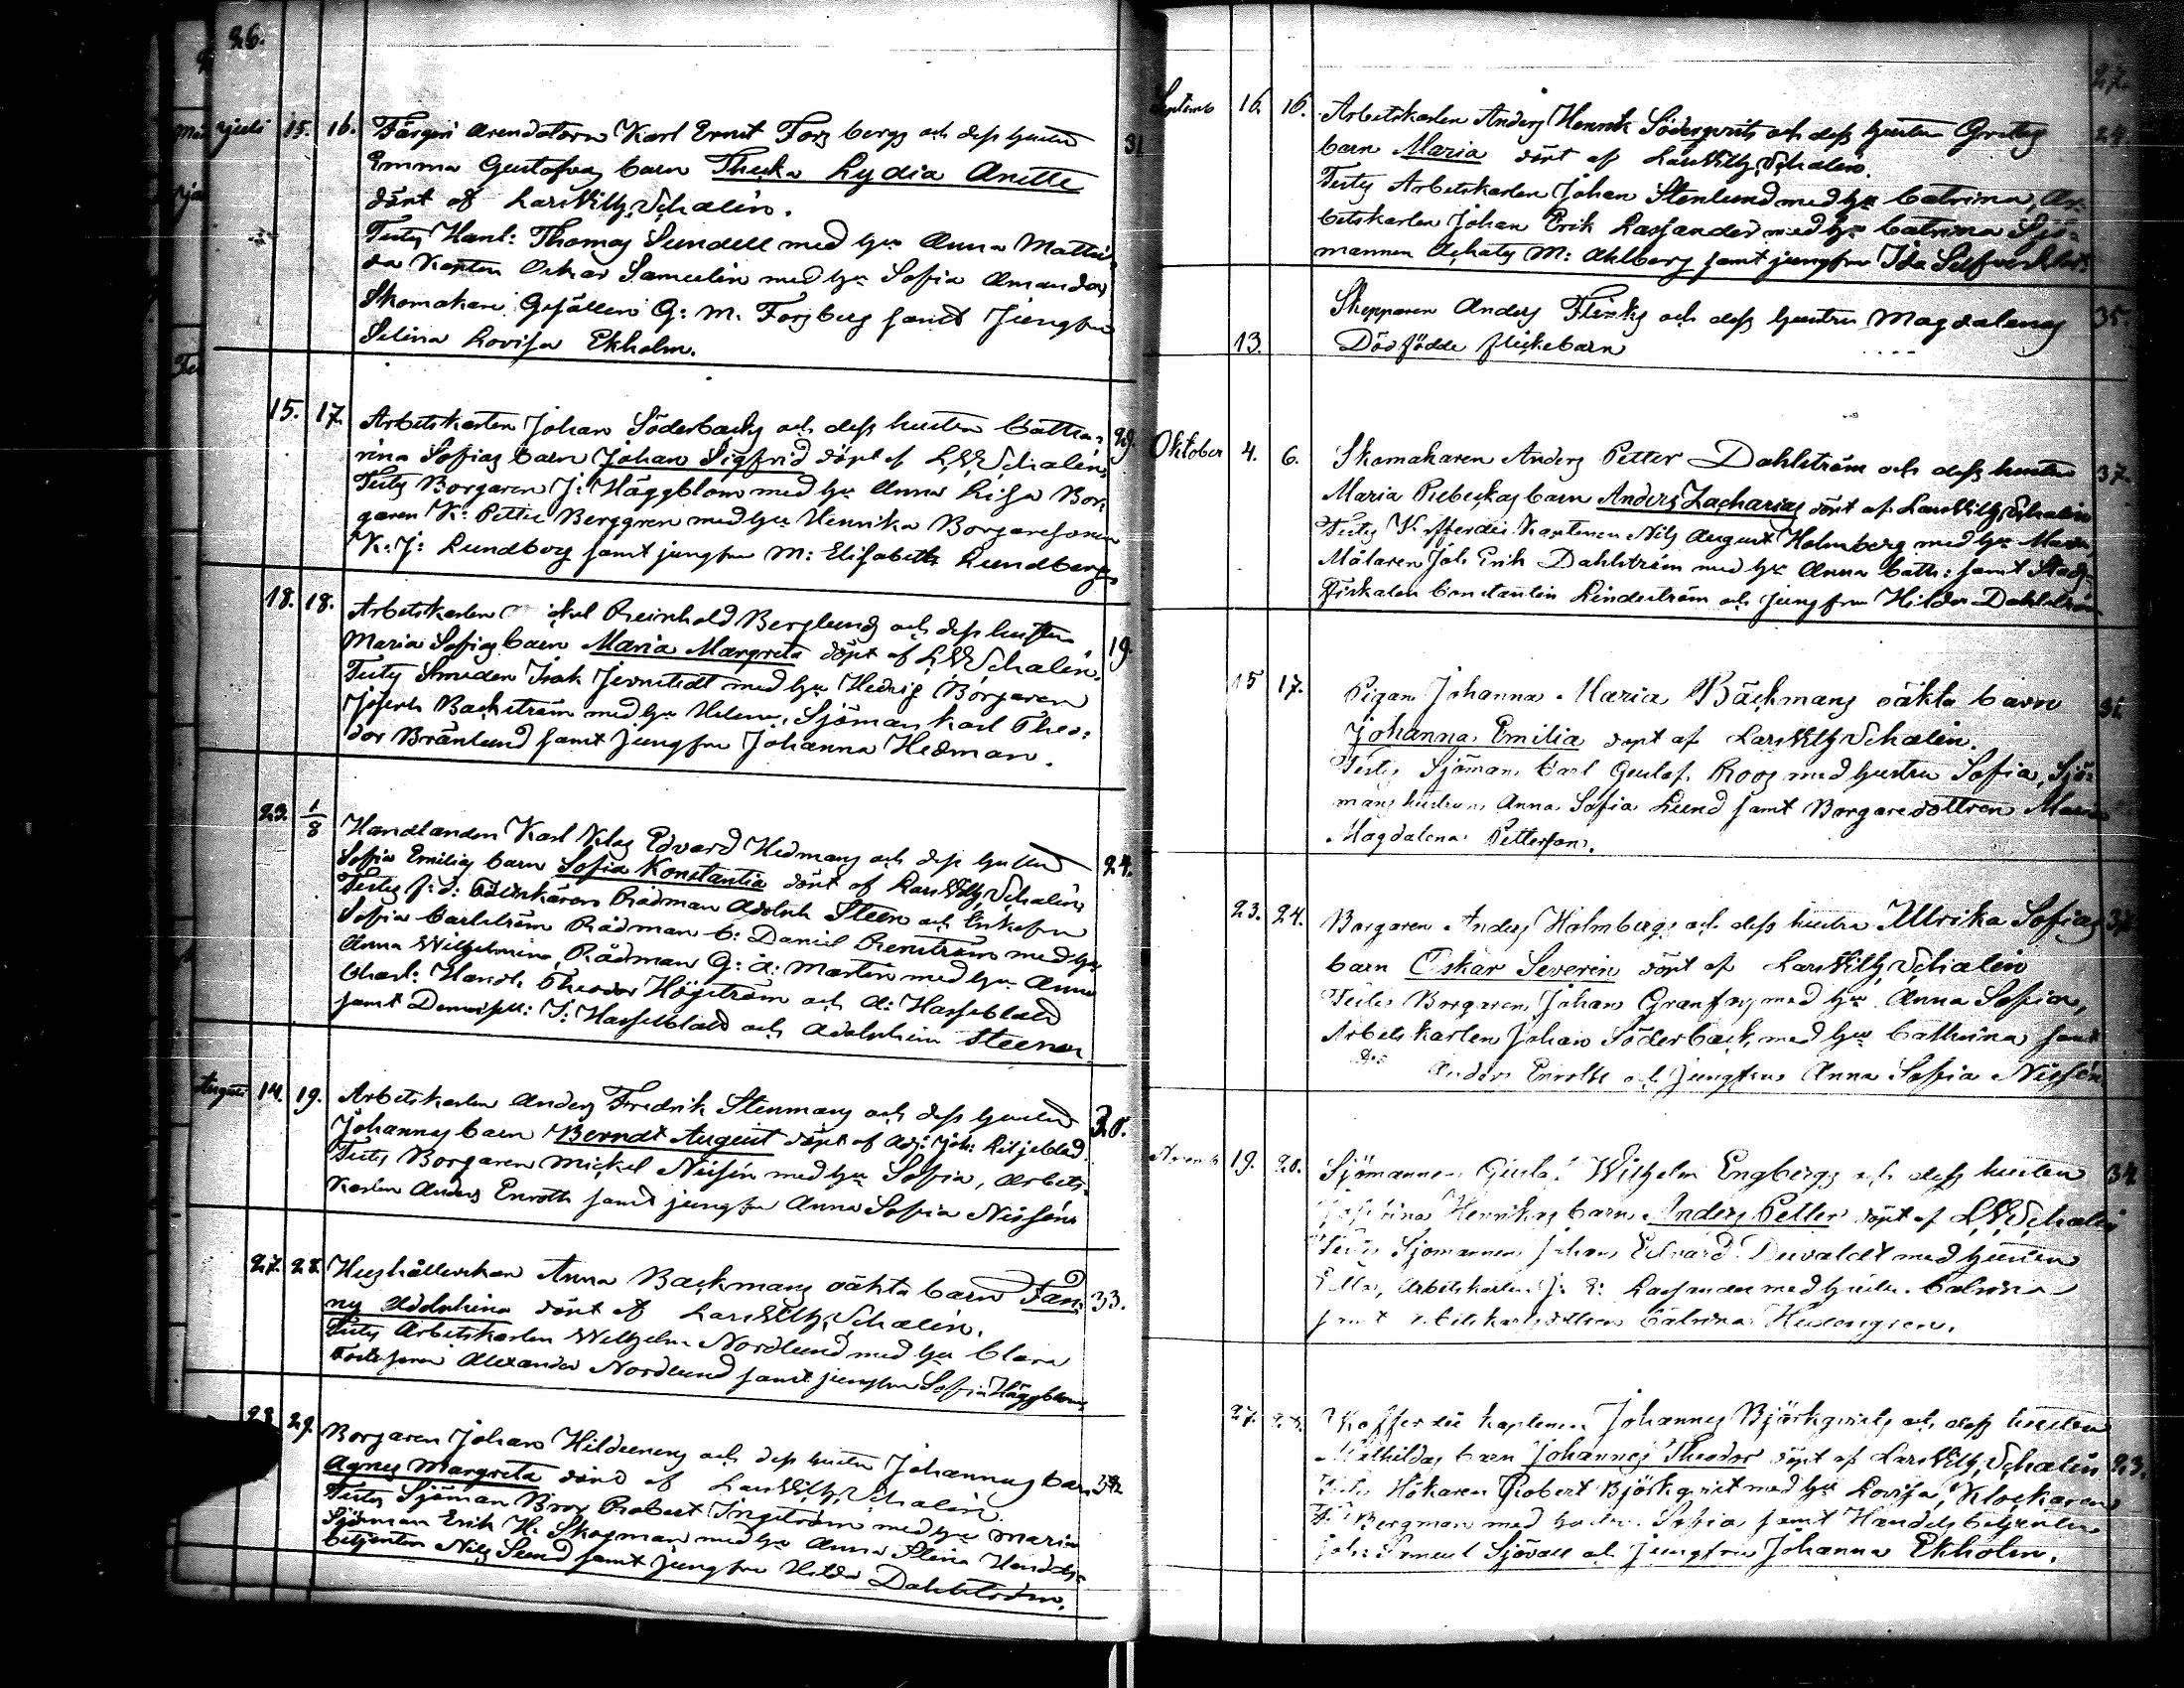 26.
Juli 15. 16. Färgeri Arendatorn Karl Ernst Forsbergs och dess hustru 31
Emma Gustafvas barn Thecka Lydia Anette
döpt af Lars Wilh. Schalin.
Testes Hanl: Thomas Sundell med hu Anna Mathil-
da Kapten Oskar Samelin med hu Sofia Amanda,
Skomakare Gesällen G: M. Forsberg samt Jungfru
Selina Lovisa Ekholm.
15. 17. Arbetskarlen Johan Söderbacks och dess hustru Catha- 29.
rina Sofias barn Johan Sigfrid döpt af L. W. Schalin,
Testes Borgaren J: Häggblom med hu Anna Lisa Bor-
garen K: Petter Berggren med hu Henrika Borgaresonen
K: J: Lundborg samt jungfru M: Elisabeth Lundberg
18. 18. Arbetskarlen Reinhold Berglunds och dess hustru
Maria Sofias barn Maria Margreta döpt af L. W. Schalin. 19.
Testes Smeden Isak Jernstedt med hu Hedvig Borgaren
Joseph Backström med hu Helena, Sjöman Karl Theo-
dor Bränlund samt Jungfru Johanna Hedman.
23. 1/8 Handlanden Karl Klas Edvard Hedmans och dess hustru
Sofia Emilias barn Sofia Konstantia döpt af Lars Wilh. Schalin, 24.
Testes Rådman Adolph Steen och Enkefru
Sofia Carlström Rådman C: Daniel Renström med hu
Anna Wilhelmina, Rådman G: A: Martin med hu Anna
Charl: Handl: Theodor Högström och A: Hasselblatt
samt Demoisell: I: Hasselblatt och Adolphina Steen
August 14. 19. Arbetskarlen Anders Fredrik Stenmans och dess hustru 20.
Johannas barn Berndt August döpt af Adj: Joh: Liljeblad.
Testes Borgaren Mickel Nissén med hu Sofia, Arbets-
karlen Anders Enroth samt jungfru Anna Sofia Nissén
27. 28. Hushållerskan Anna Backmans oäkta barn Fan- 33.
ny Adolphina döpt af Lars Wilh. Schalin.
Testes Arbetskarlen Wilhelm Nordlund med hu Clara
Alexander Nordlund samt jungfru Sofia Häggblom
28 29. Borgaren Johan Hildeens och dess hustru Johannas barn
Agnes Margreta döpt af Lars Wilh. Schalin.
Testes Sjöman Bror Robert Ingström med hu Maria
Sjöman Erik H. Skogman med hu Anna Stina Handels-
betjenten Nils Sund samt Jungfru Hilda Dahlström.
27.
Septemb 16. 16. Arbetskarlen Anders Henrik Söderqvists och dess hustru Gretas 24
barn Maria döpt af Lars Wilh. Schalin.
Testes Arbetskarlen Johan Stenlund med hu Catrina, Ar-
betskarlen Johan Erik Lassander med hu Catrina Sjö-
mannen Achates M: Ahlberg samt jungfru Ida
Skepparen Anders Flinks och dess hustru Magdalenas 35.
13. Dödfödde flickebarn
Oktober 4. 6. Skomakaren Anders Petter Dahlström och dess hustru 37.
Maria Rebeckas barn Anders Zacharias döpt af Lars Wilh. Schalin
Testes Kofferdi Kaptenen Nils August Holmberg med hu Maria,
Målaren Joh: Erik Dahlström med hu Anna Cath: samt Stads-
Fiskalen Constantin Lindström och Jungfru Hilda Dahlström
15 17. Pigan Johanna Maria Bäckmans oäkta barn
Johanna Emilia döpt af Lars Wilh. Schalin.
Testes Sjöman Carl Gustaf Roos med hustru Sofia, Sjö-
mans hustrun Anna Sofia Lund samt Borgaredottren Maria
Magdalena Petterson.
23. 24. Borgaren Anders Holmbergs och dess hustru Ulrika Sofias
barn Oskar Severin döpt af Lars Wilh. Schalin
Testes Borgaren Johan Granfors med hu Anna Sofia,
Arbetskarlen Johan Söderback, med hu Cathrina samt
Do Anders Enroth och Jungfrun Anna Sofia Nissén
19. 20. Sjömannen Gustaf Wilhelm Engbergs och dess hustru 34.
Henrikas barn Anders Petter döpt af L. W. Schalin
Testes Sjömannen Johan Edvard Duvaldt med hustru
Arbetskarlen J: E: Lassander med hustru Catrina
samt Catrina
27. 28. Kofferdi kaptenen Johannes Björkqvists och dess hustru
Mathildas barn Johannes Theodor döpt af Lars Wilh. Schalin 23.
Testes Hökaren Robert Björkqvist med hu Lovisa, Klockaren
Bergman med hustru Sofia samt Handels betjenten
Joh: Samuel Sjövall och Jungfru Johanna Ekholm.